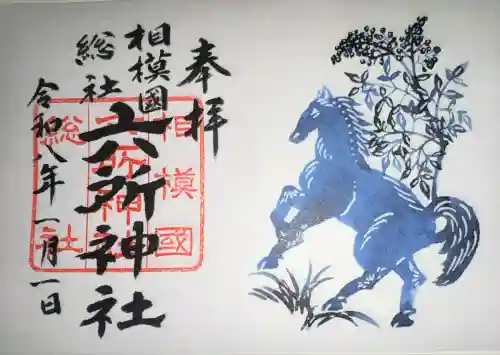 奉拝
相模國
総社
六所神社
令和八年 一月一日
相模國
六所神社
総社